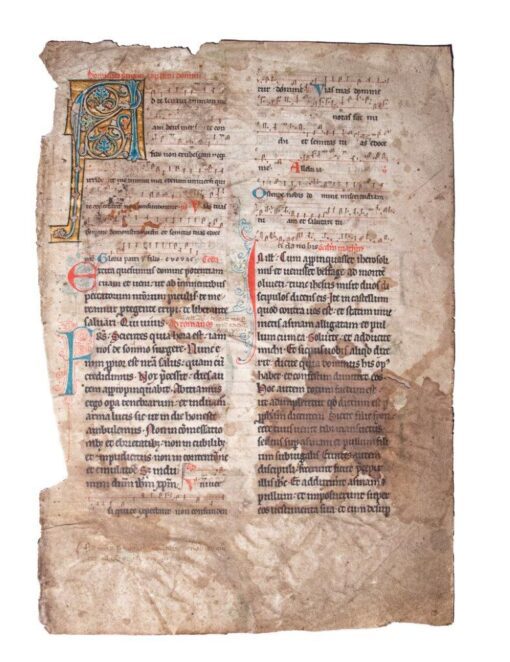 d te levavi animam me
am deus meus in te con
fido non erubescam neq
irrideant me inimici mei etenim universi qui
te expectant non confundentur Vias tuas
demonstra et semitas tuas edoce
me Gloria patri z filio euouae
Excita quesumus domine potentiam
tuam et veni ut ab iminentibus
peccatorum nostrorum periculis te me
reamur ptegente eripi te liberante
salvari Qui vivis Ad romanos
Frs Scientes quia hora est iam
nos de somno surgere Nunc e
nim ppior est nra salus quam cu
credidimus Nox pcessit dies au
tem appropinquabit Abiciamus
ergo opa tenebrarum et induam
arma lucis sic ut in die honeste
ambulemus Non in comessatio
nibz et ebrietatibz non in cubilibz
et impudicitiis non in contentione
et emulatione Sz indui
mini dnm ihm xpm Univer
si qui te expectant non confunden
tur domine Vias tuas domine
notas fac mi
chi et semitas tuas edoce
me Alleluia
Ostende nobis domine misericordiam
tuam et salutare tu
um da nobis Scdm matheu
In ill Cum appinquasset iherosoli
mis et venisset betfage ad monte
oliveti tunc ihesus misit duos di
scipulos dicens eis Ite in castellum
quod contra vos est et statim inve
nietis asinam alligatam et pul
lum cum ea Solvite et adducite
michi Et si quis vob aliqd dixe
rit dicite quia dominus his op
habet et confestim dimittet eos
Hoc autem totum factum est
ut adimpleretur quod dictum est
p pphetam dicentem Dicite filie syon
ecce rex tuus venit tibi mansuetus
sedens sup asinam et pullum fili
um subiugalis Euntes autem
discipuli fecerunt sicut precepit
illis ihc Et adduxerunt asinam et
pullum et imposuerunt super
eos vestimenta sua et eum desup